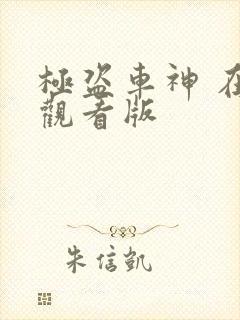 極盜車神 在
觀看版
朱信凱